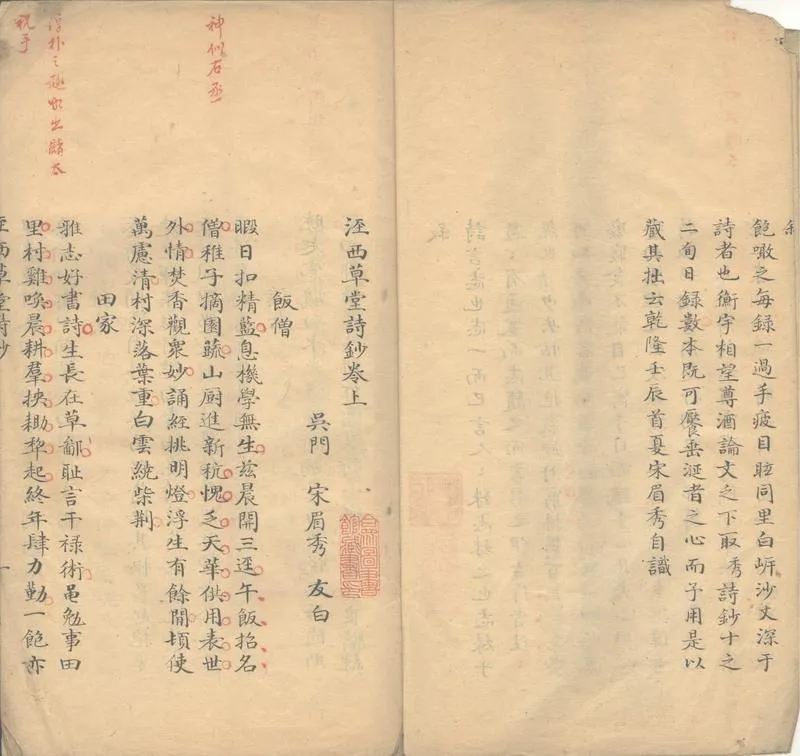 飽噉之每録一過手疲目眩同里白岓沙丈深于
詩者也衡宇相望尊酒論文之下取秀詩鈔十之
二旬日録數本既可饜垂涎者之心而予用是以
藏其拙云乾隆壬辰首夏宋眉秀自識
涇西草堂詩鈔卷上
吳門 宋眉秀 友白
飯僧
暇日扣精藍息機學無生兹晨開三逕午飯招名
僧稚子摘園蔬山厨進新秔愧乏天華供用表世
外情焚香觀衆妙誦經挑明燈浮生有餘閒頃使
萬慮清村深落葉重白雲繞柴荆
田家
雅志好書詩生長在草鄙耻言干禄術黽勉事田
里村雞喚晨耕羣挾耡犂起終年肆力勤一飽亦
涇西草堂詩鈔
一
神似右丞
淳朴之趣
祝乎